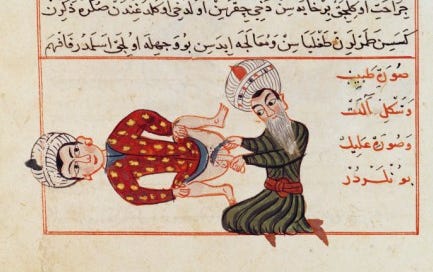 جراحت اولیجق بوخایه سن دخی چقرسن اول دخی اوکلدغندن صکره ذکرون
کسه سن طولون طغلیاسن ومعالجه ایده سن بو وجهله اولیجق اسلمدر فافهم
صورت طبیب
وشکل آلت
وصورت علیل
بونلردر